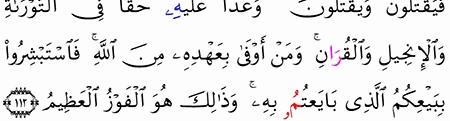 فَيَقْتُلُونَ وَيُقْتَلُونَ وَعْدًا عَلَيْهِۦ حَقًّا فِي التَّوْرَىٰةِ
وَالْإِنجِيلِ وَالْقُرَانِ ۚ وَمَنْ أَوْفَىٰ بِعَهْدِهِۦ مِنَ اللَّهِ ۚ فَاسْتَبْشِرُوا
بِبَيْعِكُمُ الَّذِي بَايَعْتُمُۥ بِهِۦ ۚ وَذَٰلِكَ هُوَ الْفَوْزُ الْعَظِيمُ ١١٢